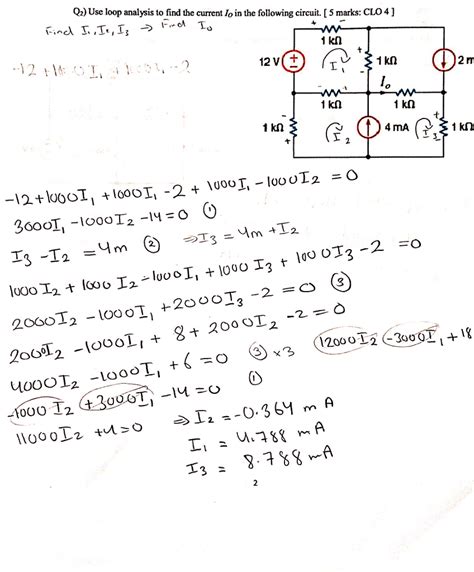 Q2) Use loop analysis to find the current Io in the following circuit. [ 5 marks: CLO 4 ]
Find I1, I2, I3 → Find Io
1 kΩ
12 V
I1
1 kΩ
2 m
Io
1 kΩ
1 kΩ
1 kΩ
I2
4 mA
I3
1 kΩ
-12+1000I1 +1000I1 -2 + 1000I1 -1000I2 = 0
3000I1 -1000I2 -14=0 ①
I3 - I2 = 4m ② ⇒I3 = 4m + I2
1000I2 + 1000I2 -1000I1 +1000I3 + 1000I3 -2 =0
2000I2 - 1000I1 +2000I3 - 2 = 0 ③
2000I2 -1000I1 + 8 + 2000I2 -2=0
4000I2 -1000I1 +6 =0 ③ ×3
12000I2 -3000I1 +18
-1000I2 +3000I1 -14=0 ①
11000I2 +4=0 ⇒I2=-0.364 mA
I1 = 4.788 mA
I3 = 8.788mA
2